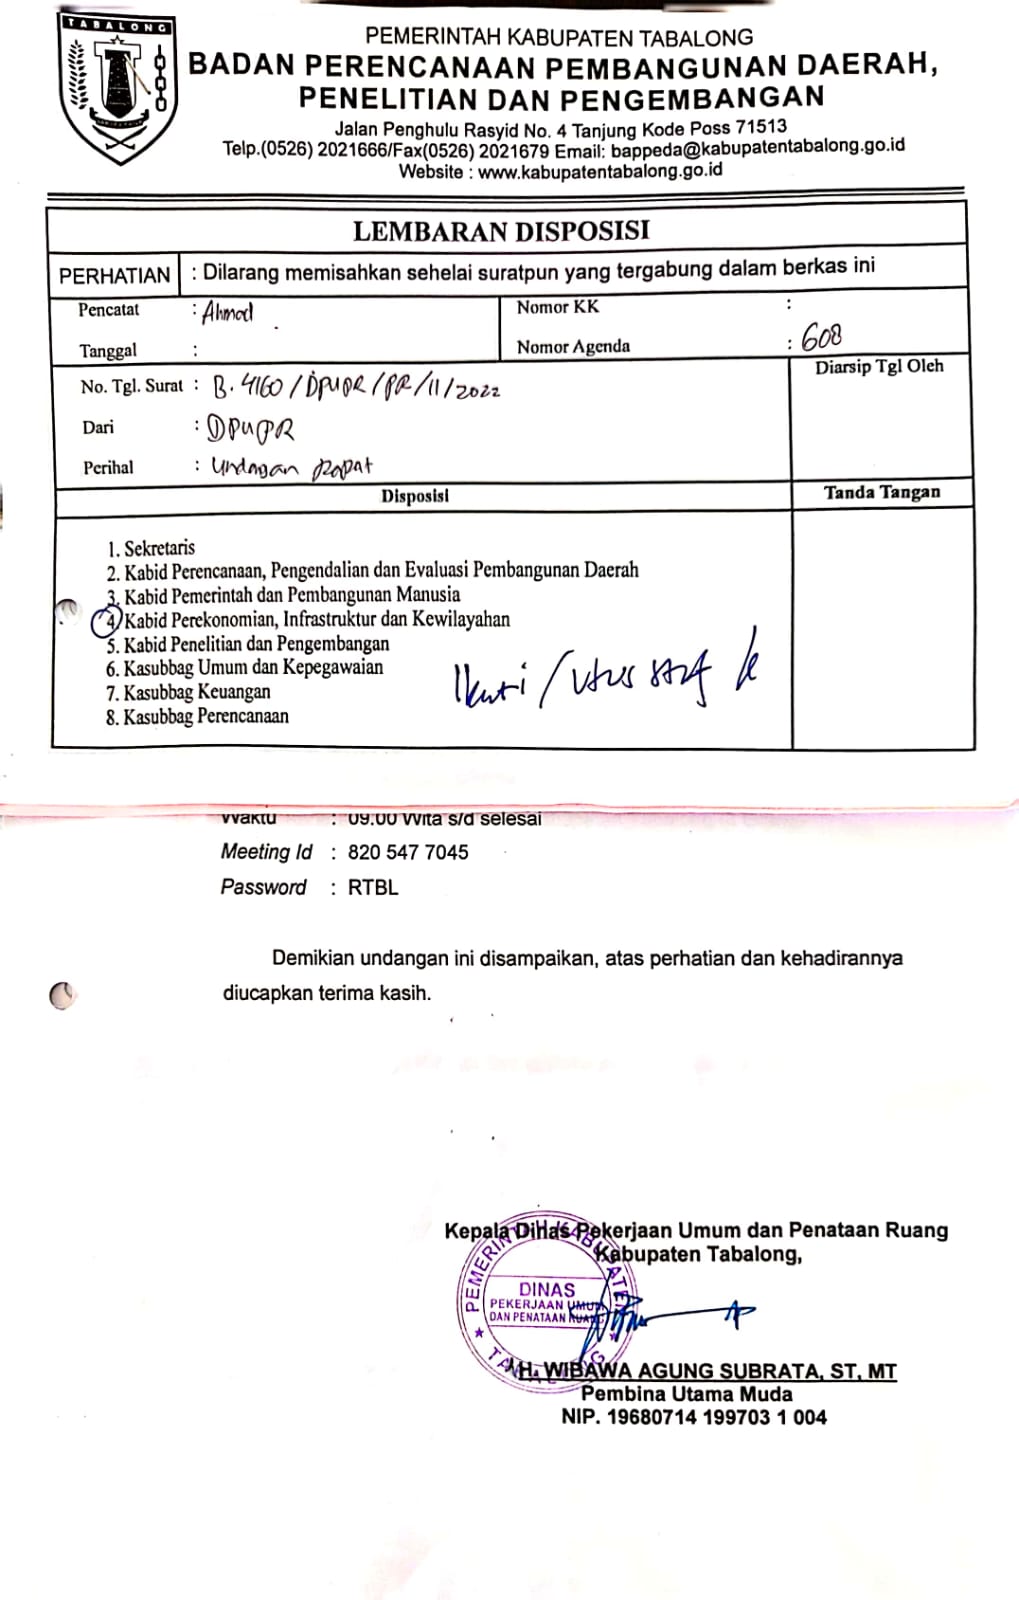 TABALONG
PEMERINTAH KABUPATEN TABALONG
BADAN PERENCANAAN PEMBANGUNAN DAERAH,
PENELITIAN DAN PENGEMBANGAN
Jalan Penghulu Rasyid No. 4 Tanjung Kode Poss 71513
Telp.(0526) 2021666/Fax(0526) 2021679 Email: bappeda@kabupatentabalong.go.id
Website : www.kabupatentabalong.go.id
LEMBARAN DISPOSISI
PERHATIAN : Dilarang memisahkan sehelai suratpun yang tergabung dalam berkas ini
Pencatat : Ahmad
Nomor KK :
Tanggal :
Nomor Agenda : 608
No. Tgl. Surat : B.4160/DPUPR/PR/11/2022
Diarsip Tgl Oleh
Dari : DPUPR
Perihal : Undangan Rapat
Disposisi
Tanda Tangan
1. Sekretaris
2. Kabid Perencanaan, Pengendalian dan Evaluasi Pembangunan Daerah
3. Kabid Pemerintah dan Pembangunan Manusia
4. Kabid Perekonomian, Infrastruktur dan Kewilayahan
5. Kabid Penelitian dan Pengembangan
6. Kasubbag Umum dan Kepegawaian
7. Kasubbag Keuangan
8. Kasubbag Perencanaan
Ikuti / utus staf
Waktu : 09.00 Wita s/d selesai
Meeting Id : 820 547 7045
Password : RTBL
Demikian undangan ini disampaikan, atas perhatian dan kehadirannya
diucapkan terima kasih.
Kepala Dinas Pekerjaan Umum dan Penataan Ruang
Kabupaten Tabalong,
PEMERINTAH KABUPATEN
DINAS
PEKERJAAN UMUM
DAN PENATAAN RUANG
H. WIBAWA AGUNG SUBRATA, ST, MT
Pembina Utama Muda
NIP. 19680714 199703 1 004